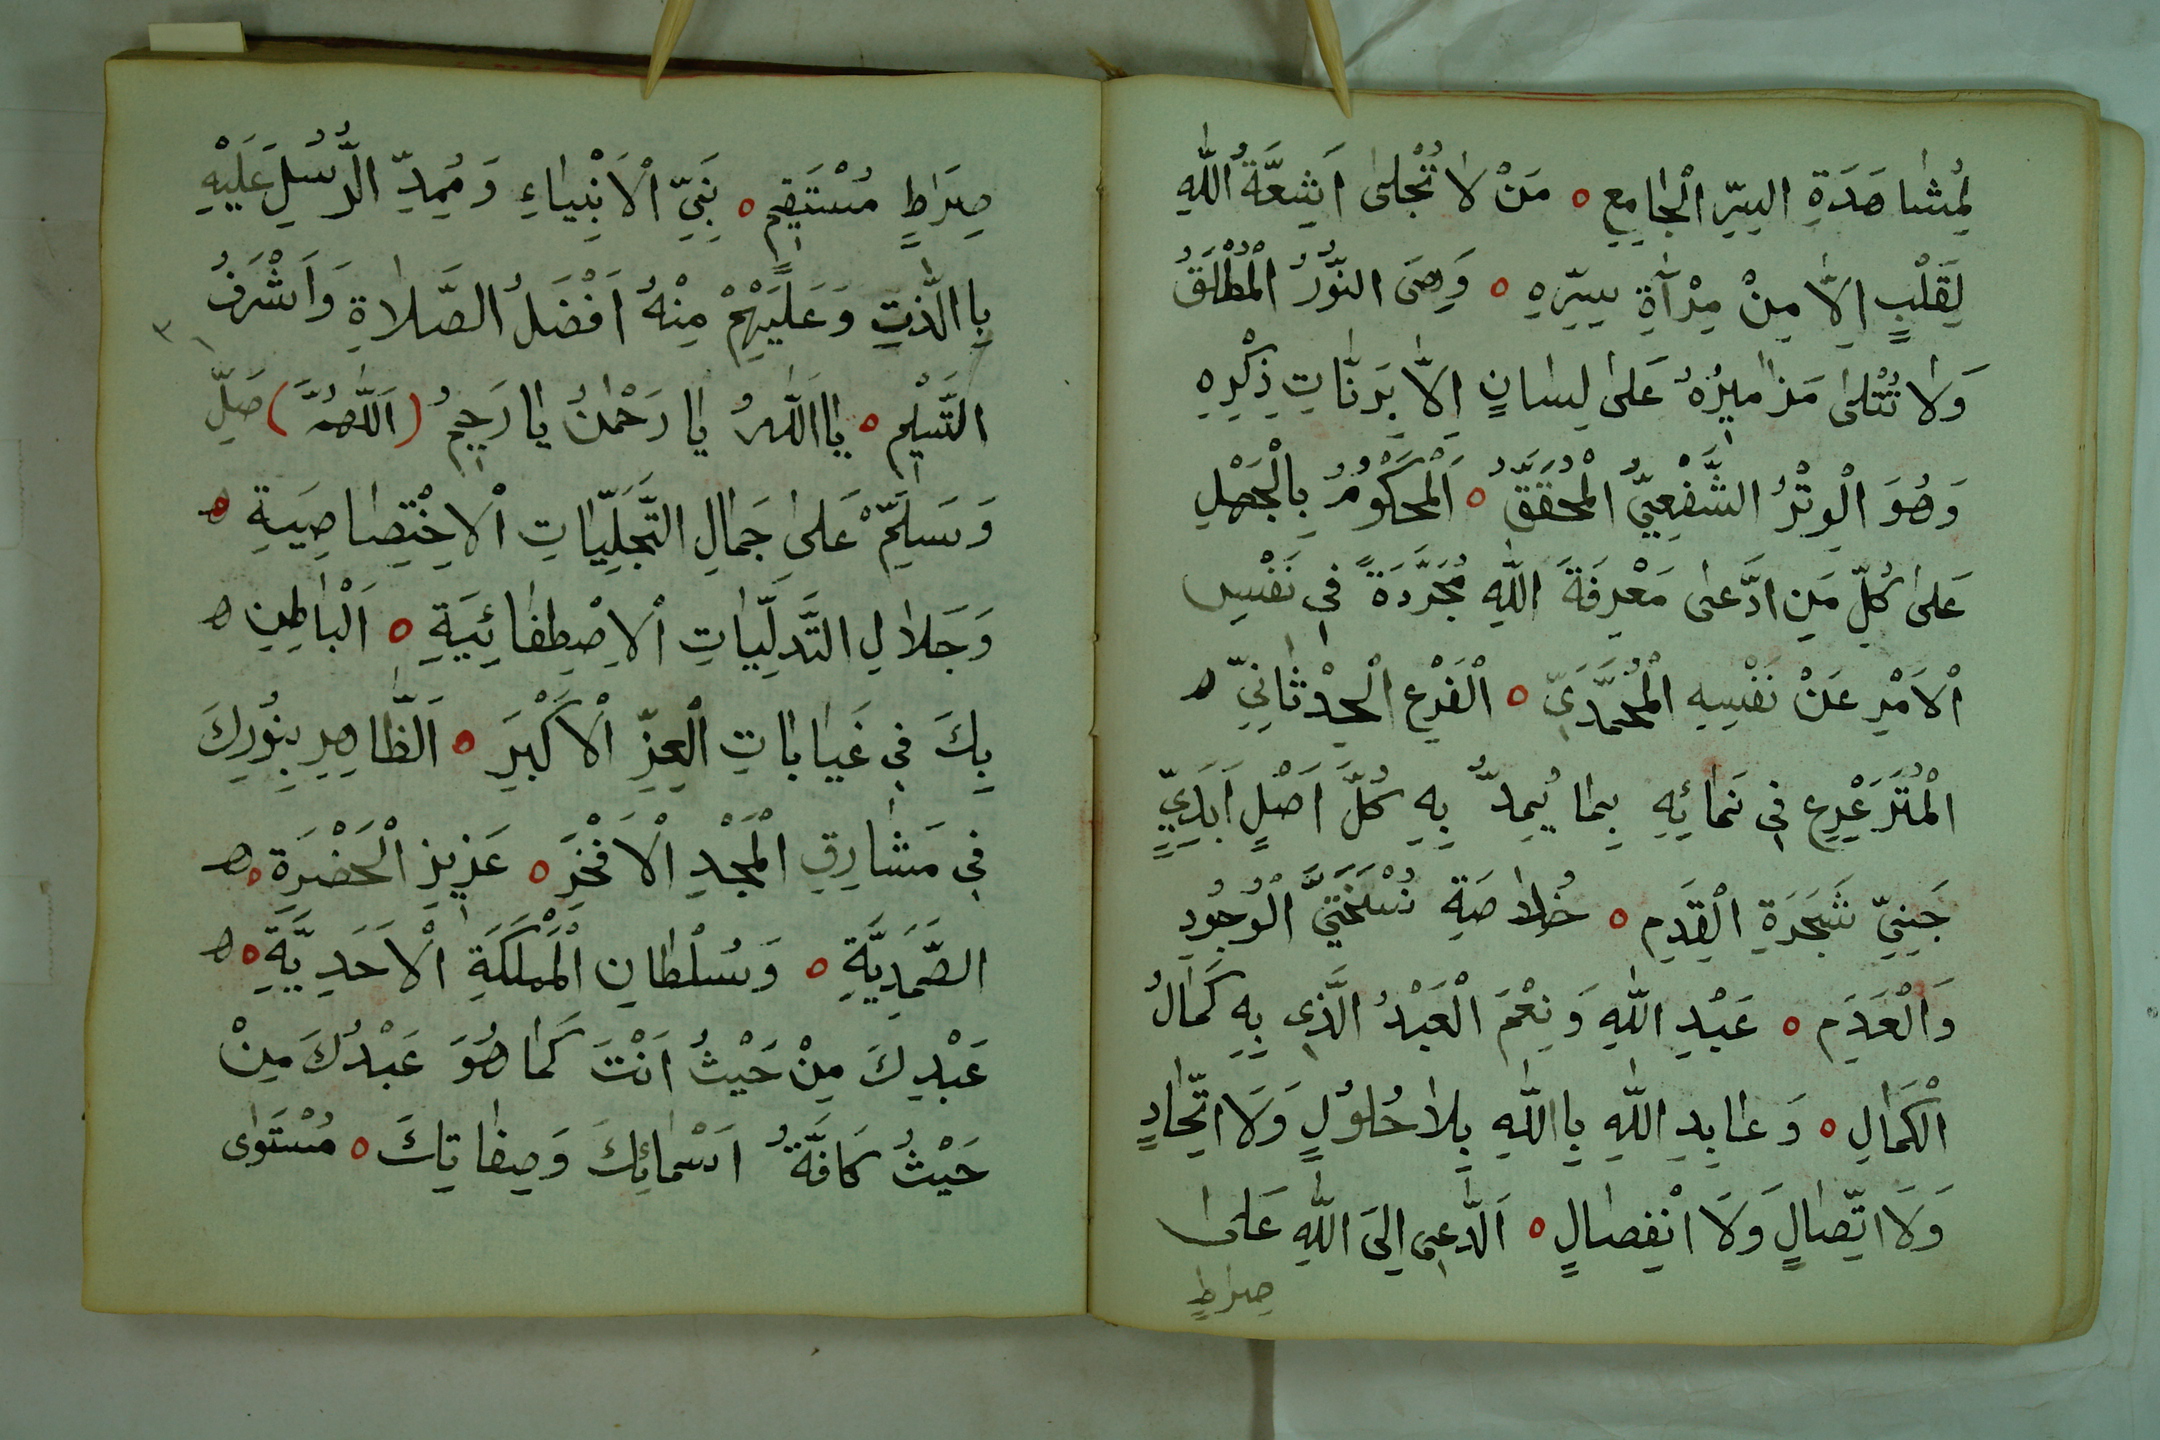 لِمُشَاهَدَةِ السِّرِّ الْجَامِعِ ه مَنْ لَا تُجْلَى اَشِعَّةُ اللّٰهِ
لِقَلْبٍ اِلَّا مِنْ مِرْآةِ سِرِّهِ ه وَهِىَ النُّورُ الْمُطْلَقُ
وَلَا تُتْلَى مَزَامِيرُهُ عَلَى لِسَانٍ اِلَّا بَرَنَّاتِ ذِكْرِهِ
وَهُوَ الْوِتْرُ الشَّفْعِيُّ الْمُحَقَّقُ ه اَلْمَحْكُومُ بِالْجَهْلِ
عَلَى كُلِّ مَنِ ادَّعَى مَعْرِفَةَ اللّٰهِ مُجَرَّدَةً فِى نَفْسِ
الْاَمْرِ عَنْ نَفْسِهِ الْمُحَمَّدِيِّ ه الْفَرْعِ الْحِدْثَانِيِّ ه
الْمُتَرَعْرِعِ فِى نَمَائِهِ بِمَا يُمِدُّ بِهِ كُلَّ اَصْلٍ اَبَدِيٍّ
جَنِيِّ شَجَرَةِ الْقِدَمِ ه خُلَاصَةِ نُسْخَتَيِّ الْوُجُودِ
وَالْعَدَمِ ه عَبْدِ اللّٰهِ وَنِعْمَ الْعَبْدُ الَّذِى بِهِ كَمَالُ
الْكَمَالِ ه وَعَابِدِ اللّٰهِ بِاللّٰهِ بِلَا حُلُولٍ وَلَا اتِّحَادٍ
وَلَا اتِّصَالٍ وَلَا انْفِصَالٍ ه اَلدَّاعِى اِلَى اللّٰهِ عَلَى
صِرَاطٍ
صِرَاطٍ مُسْتَقِيمٍ ه نَبِيِّ الْاَنْبِيَاءِ وَمُمِدِّ الرُّسُلِ عَلَيْهِ
بِاالذَّتِ وَعَلَيْهِمْ مِنْهُ اَفْضَلُ الصَّلَاةِ وَاَشْرَفُ
التَّسْلِيمِ ه يَااَللّٰهُ يَا رَحْمٰنُ يَا رَحِيمُ (اَللّٰهُمَّ) صَلِّ
وَسَلِّمْ عَلَى جَمَالِ التَّجَلِّيَاتِ الْاِخْتِصَاصِيَةِ ه
وَجَلَالِ التَّدَلِّيَاتِ الْاِصْطِفَائِيَةِ ه اَلْبَاطِنِ ه
بِكَ فِى غَيَابَاتِ الْعِزِّ الْاَكْبَرِ ه اَلظَّاهِرِ بِنُورِكَ
فِى مَشَارِقِ الْمَجْدِ الْاَفْخَرِ ه عَزِيزِ الْحَضْرَةِ ه ه
الصَّمَدِيَّةِ ه وَسُلْطَانِ الْمَمْلَكَةِ الْاَحَدِيَّةِ ه ه
عَبْدِكَ مِنْ حَيْثُ اَنْتَ كَمَا هُوَ عَبْدُكَ مِنْ
حَيْثُ كَافَّةُ اَسْمَائِكَ وَصِفَاتِكَ ه مُسْتَوَاى